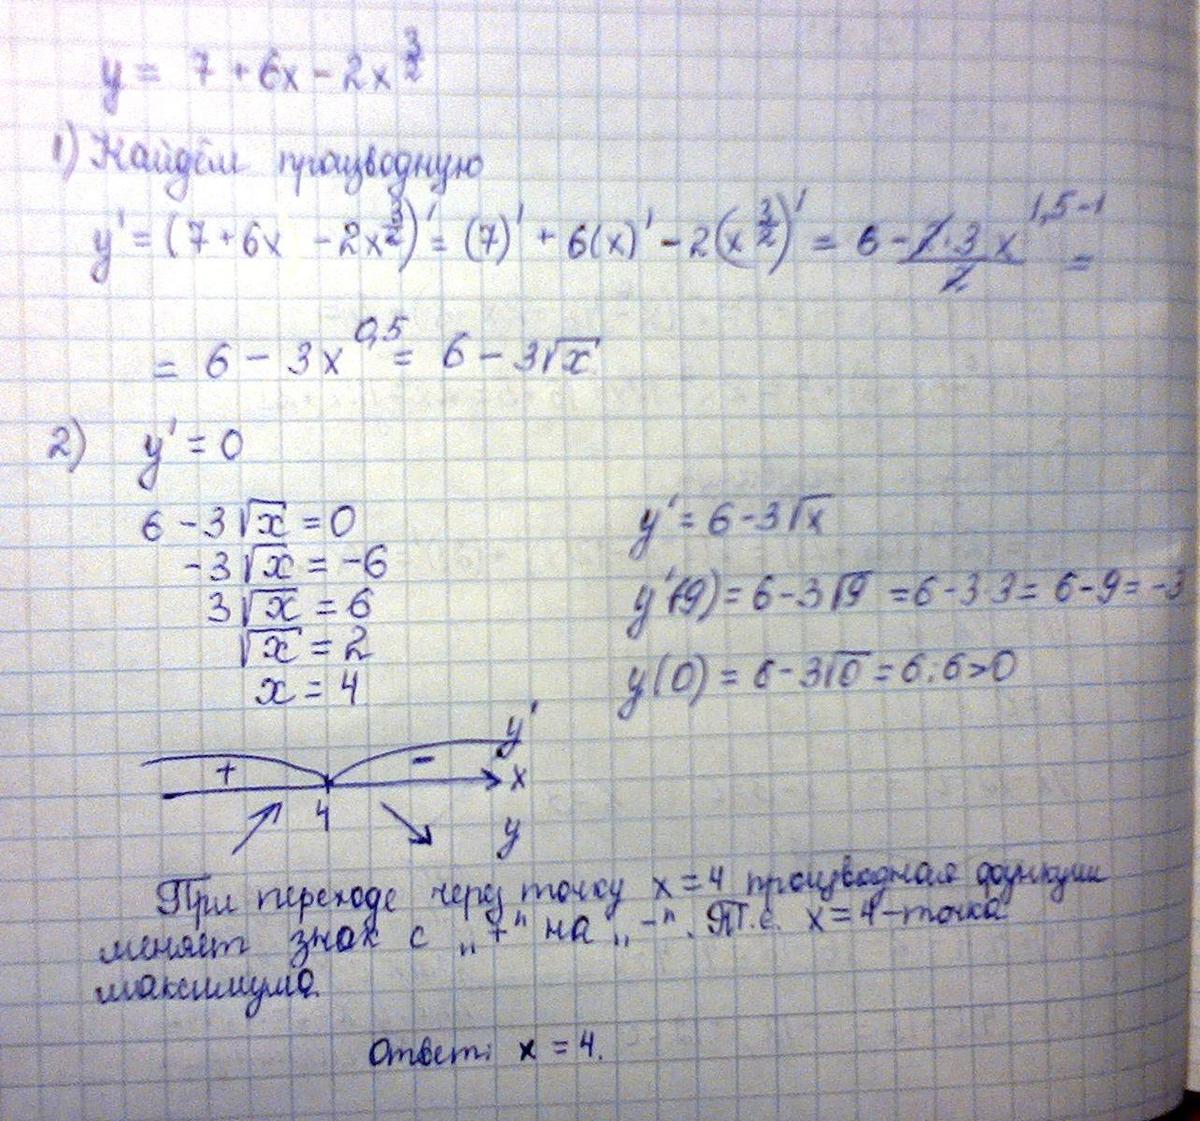 y = 7 + 6x - 2x^{3/2}
1) Найдём производную
y' = (7 + 6x - 2x^{3/2})' = (7)' + 6(x)' - 2(x^{3/2})' = 6 - \frac{2·3}{2} x^{1,5-1} =
= 6 - 3x^{0,5} = 6 - 3√x
2) y' = 0
6 - 3√x = 0
-3√x = -6
3√x = 6
√x = 2
x = 4
y' = 6 - 3√x
y'(9) = 6 - 3√9 = 6 - 3·3 = 6 - 9 = -3
y(0) = 6 - 3√0 = 6; 6>0
y'
+ - x
4
y
При переходе через точку x = 4 производная функции
меняет знак с „+" на „-". Т.е. x = 4 - точка
максимума.
Ответ: x = 4.